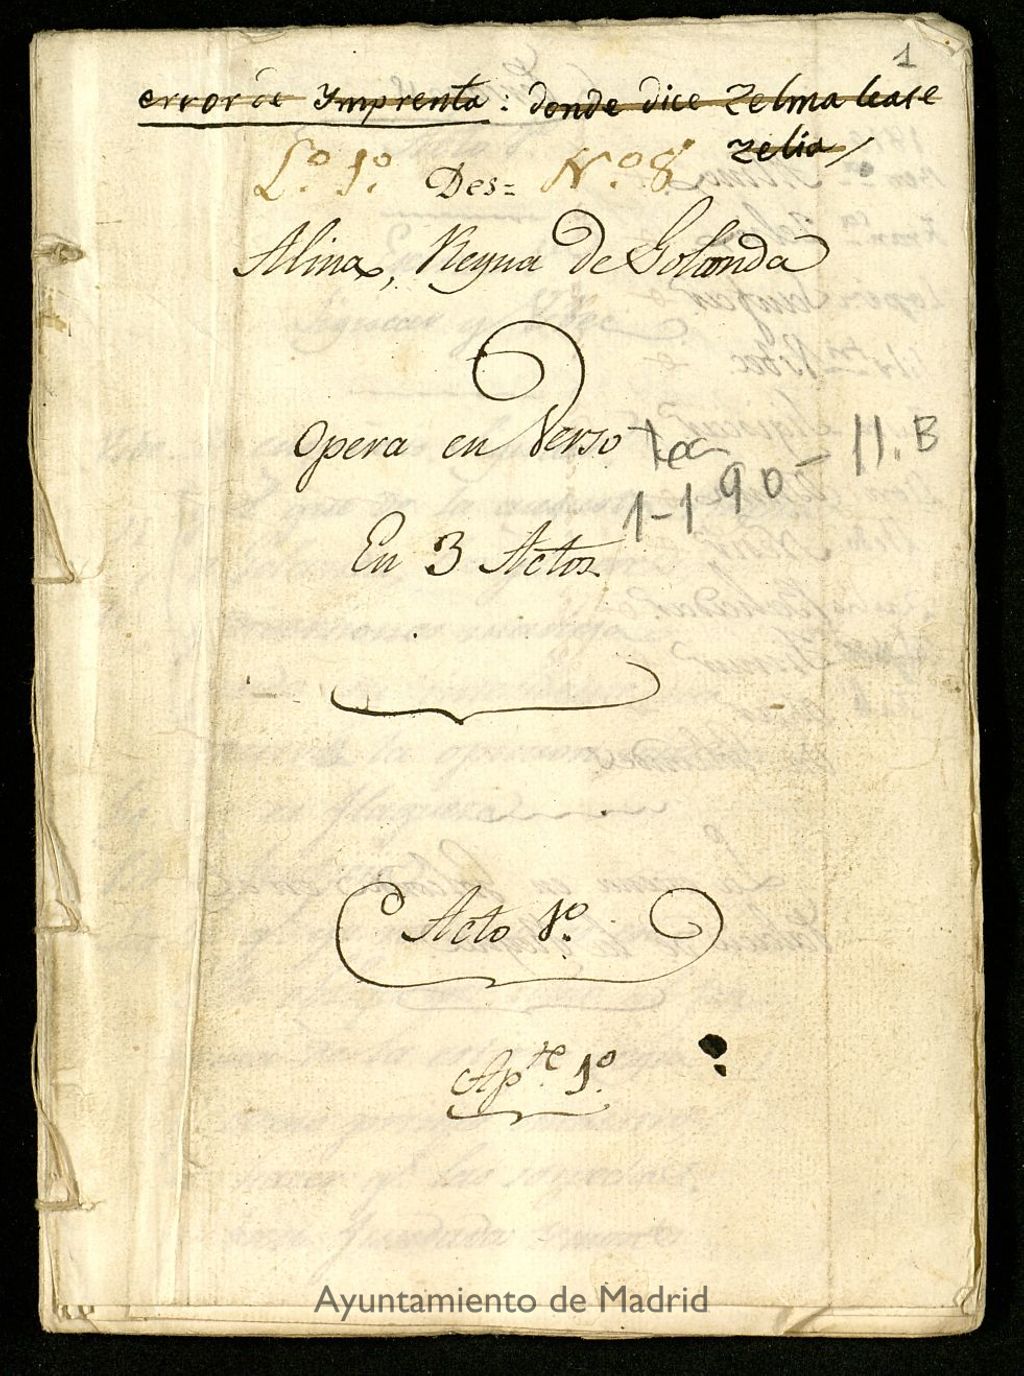 1
error de Ymprenta: donde dice Zelma lease
Zelia
L.º 1.º Des= N.º 8
Alina, Reyna de Golconda
Opera en Verso
Tea 1-1-90-11.B
En 3 Actos
Acto 1.º
Ap.te 1.º
Ayuntamiento de Madrid